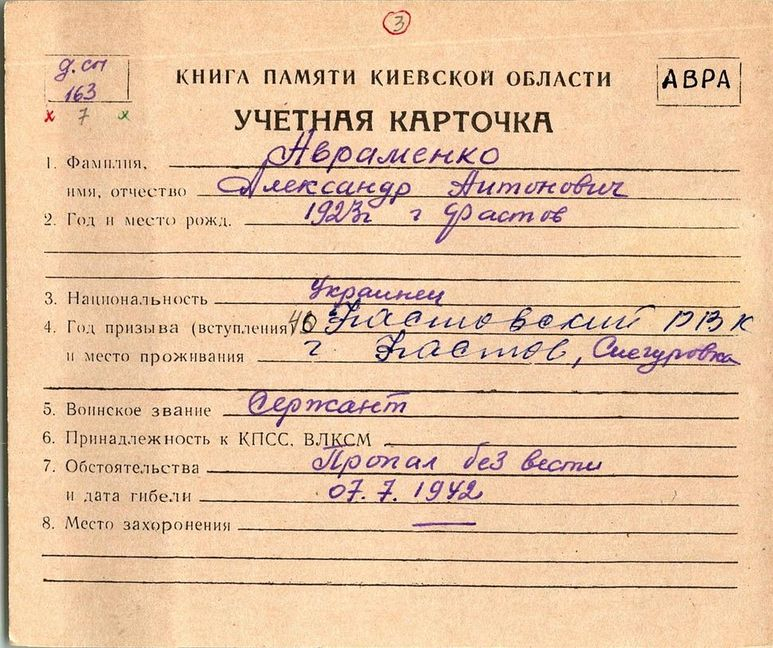 3
д. сп
163
х 7 х
АВРА
КНИГА ПАМЯТИ КИЕВСКОЙ ОБЛАСТИ
УЧЕТНАЯ КАРТОЧКА
1. Фамилия, Авраменко
имя, отчество Александр Антонович
2. Год и место рожд. 1923г г Фастов
3. Национальность Украинец
4. Год призыва (вступления) 40 Фастовский РВК
и место проживания г. Фастов, Снегуровка
5. Воинское звание Сержант
6. Принадлежность к КПСС, ВЛКСМ
7. Обстоятельства Пропал без вести
и дата гибели 07.7.1942
8. Место захоронения —